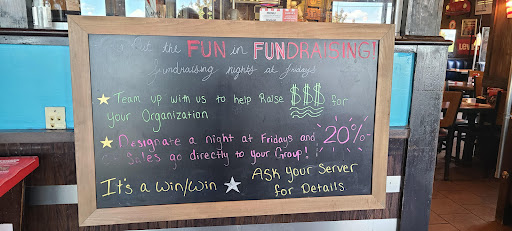 Put the FUN in FUNDRAISING!
fundraising nights at fridays
Team up with us to help Raise $$$ for
your Organization
Designate a night at Fridays and 20%
Sales go directly to your Group!
It's a Win/Win
ASK your SERVER
for Details